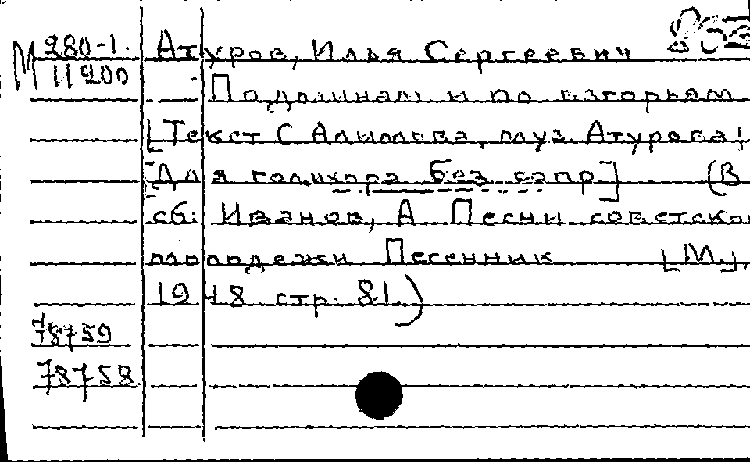 М 280-1. Атуров, Илья Сергеевич
11200 По долинам и по взгорьям
[Текст С Алымова, муз. Атурова]
[Для голихора без сопр] (В
сб: Иванов, А Песни советско
молодежи Песенник [М.],
1948 стр. 81.)
78759
78758